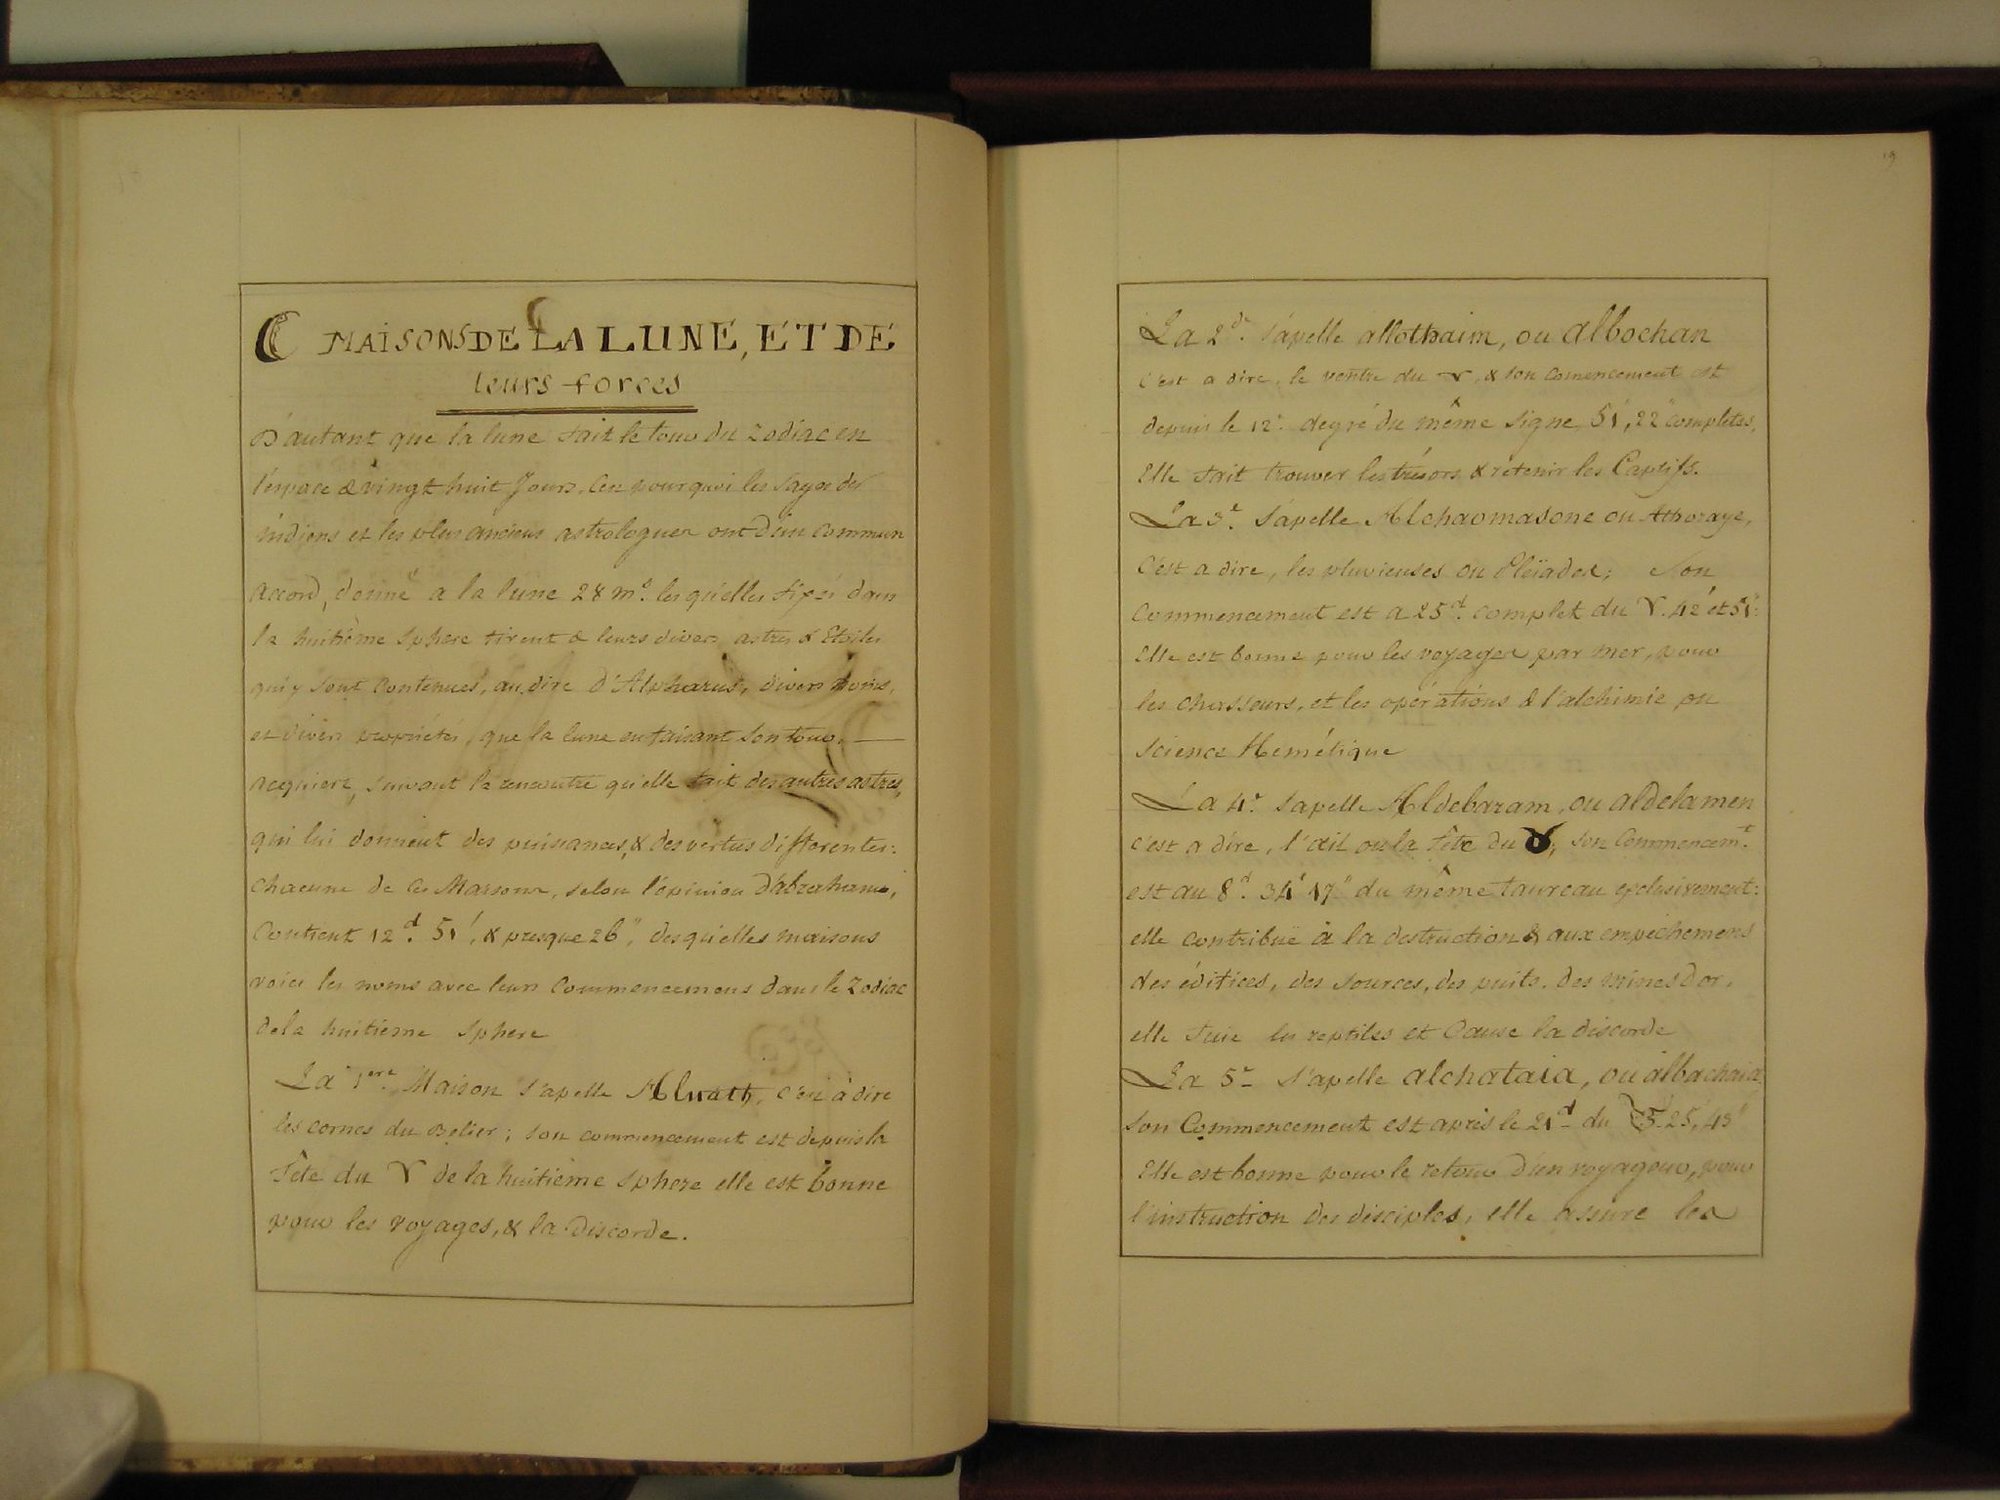 ☾ MAISONS DE LA LUNE, ET DE
leurs forces
D'autant que la lune fait le tour du Zodiac en
l'espace de vingt huit Jours, c'en pourquoi les sages des
indiens et les plus anciens astrologues ont d'un commun
accord, donné a la lune 28 m.s lesquelles fixés dans
la huitième sphere tirent de leurs divers astres & Etoiles
qui y sont contenues, au dire d'Alpharus, divers noms,
et divers proprietés, que la lune en faisant son tour,
acquiert, suivant la rencontre qu'elle fait des autres astres,
qui lui donnent des puissances, & des vertus differentes:
chacune de ces Maisons, selon l'opinion d'abraham,
Contient 12d. 51', & presque 26", desquelles maisons
voici les noms avec leurs Commencemens dans le Zodiac
de la huitième sphere
La 1ere Maison s'apelle Alnath, c'en à dire
les cornes du Belier; son commencement est depuis la
Tête du ♈ de la huitième sphere elle est bonne
pour les voyages, & la discorde.
19
La 2de. s'apelle allothaim, ou albochan
c'est a dire, le ventre du ♈, & son comencement est
depuis le 12e. degré du même signe 51', 22" completes,
Elle fait trouver les trésors & retenir les Captifs.
La 3e. s'apelle Alchaomasone ou Athoraye,
c'est a dire, les pluvieuses ou Pleïades; son
commencement est a 25d. complet du ♈. 42' et 51":
Elle est bonne pour les voyages par mer, pour
les chasseurs, et les opérations de l'alchimie ou
science Hemétique
La 4e. s'apelle Aldebaram, ou aldelamen
c'est a dire, l'œil ou la Tête du ♉, son Commencem.t
est au 8d. 34' 17" du même taureau exclusivement:
elle contribuë à la destruction & aux empechemens
des édifices, des sources, des puits, des mines d'or,
elle fuie les reptiles et Cause la discorde
La 5e s'apelle alchataia, ou albachaia
son Commencement est après le 21d du ♉ 25, 43"
Elle est bonne pour le retour d'un voyageur, pour
l'instruction des disciples, elle assure les